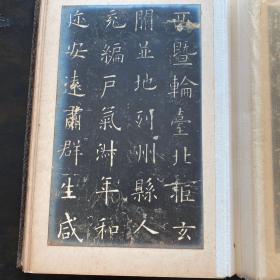 西暨輪臺北拒玄
闕並地列州縣人
充編戶氣淑年和
迩安遠肅群生咸